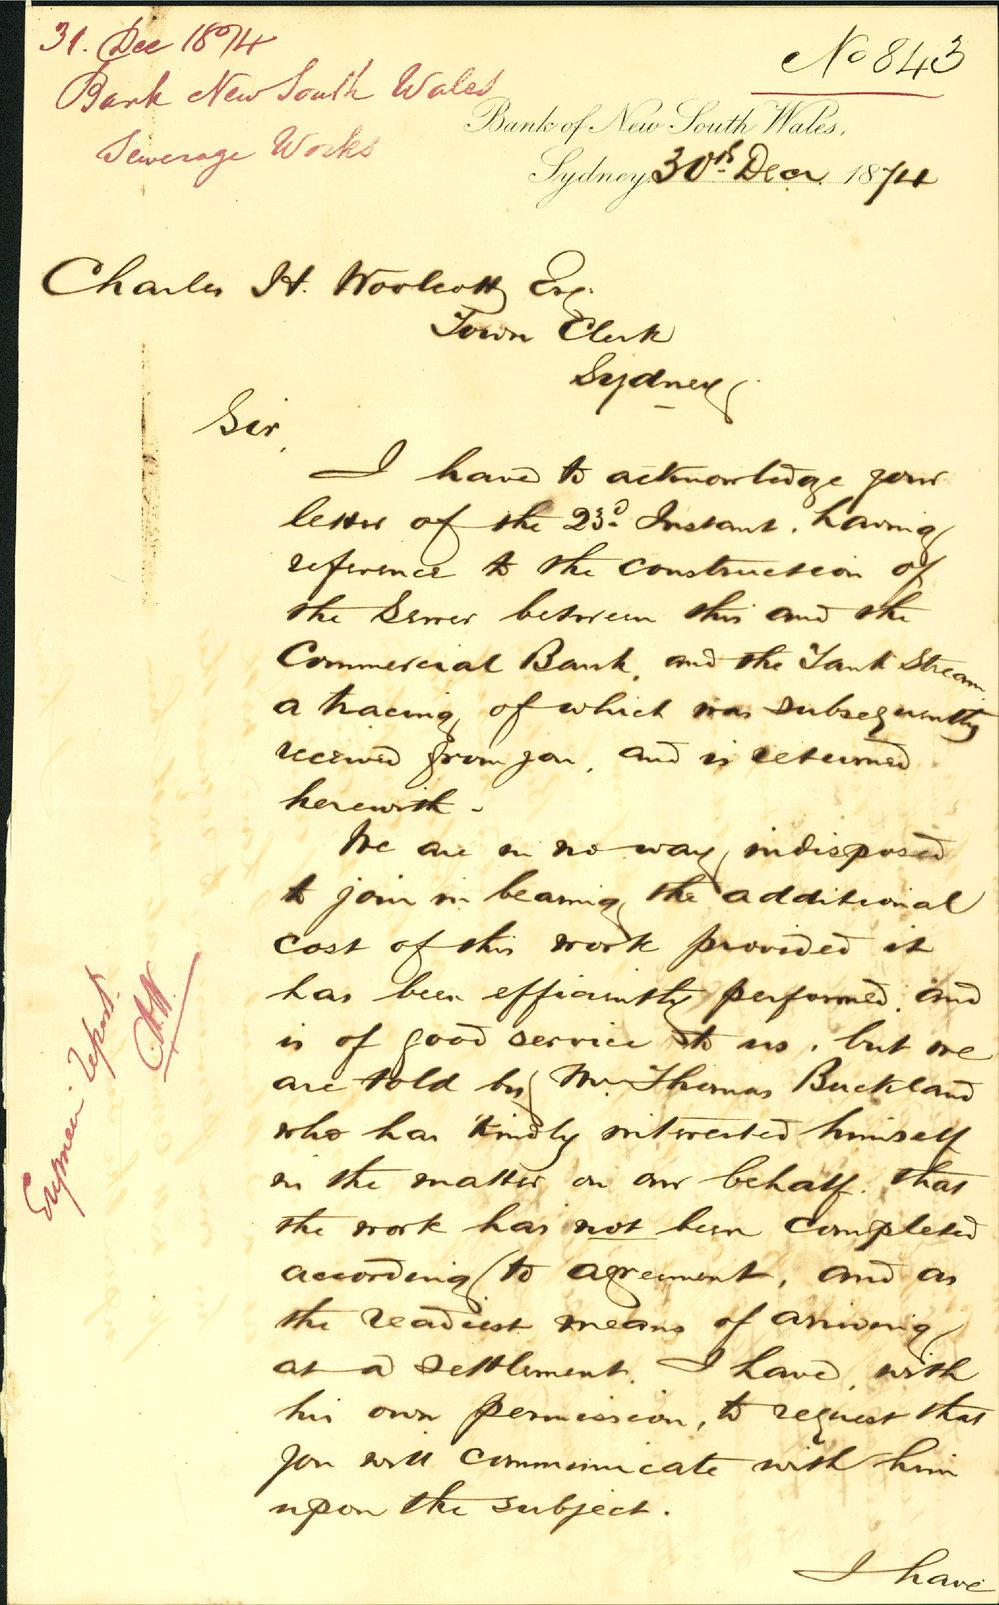 31. Dec 1874
Bank New South Wales
Sewerage Works
No 843
Bank of New South Wales,
Sydney 30th Decr. 1874
Charles H. Woolcott Esq.
Town Clerk
Sydney
Sir,
I have to acknowledge your
letter of the 23d Instant, having
reference to the construction of
the Sewer between this and the
Commercial Bank, and the Tank Stream
a tracing of which was subsequently
received from you, and is returned
herewith -
We are in no way indisposed
to join in bearing the additional
cost of this work provided it
has been efficiently performed, and
is of good service to us, but we
are told by Mr Thomas Buckland
who has kindly interested himself
in the matter on our behalf, that
the work has not been completed
according to agreement, and as
the readiest means of arriving
at a settlement, I have, with
his own permission, to request that
you will communicate with him
upon the subject.
I have
Engineer report.